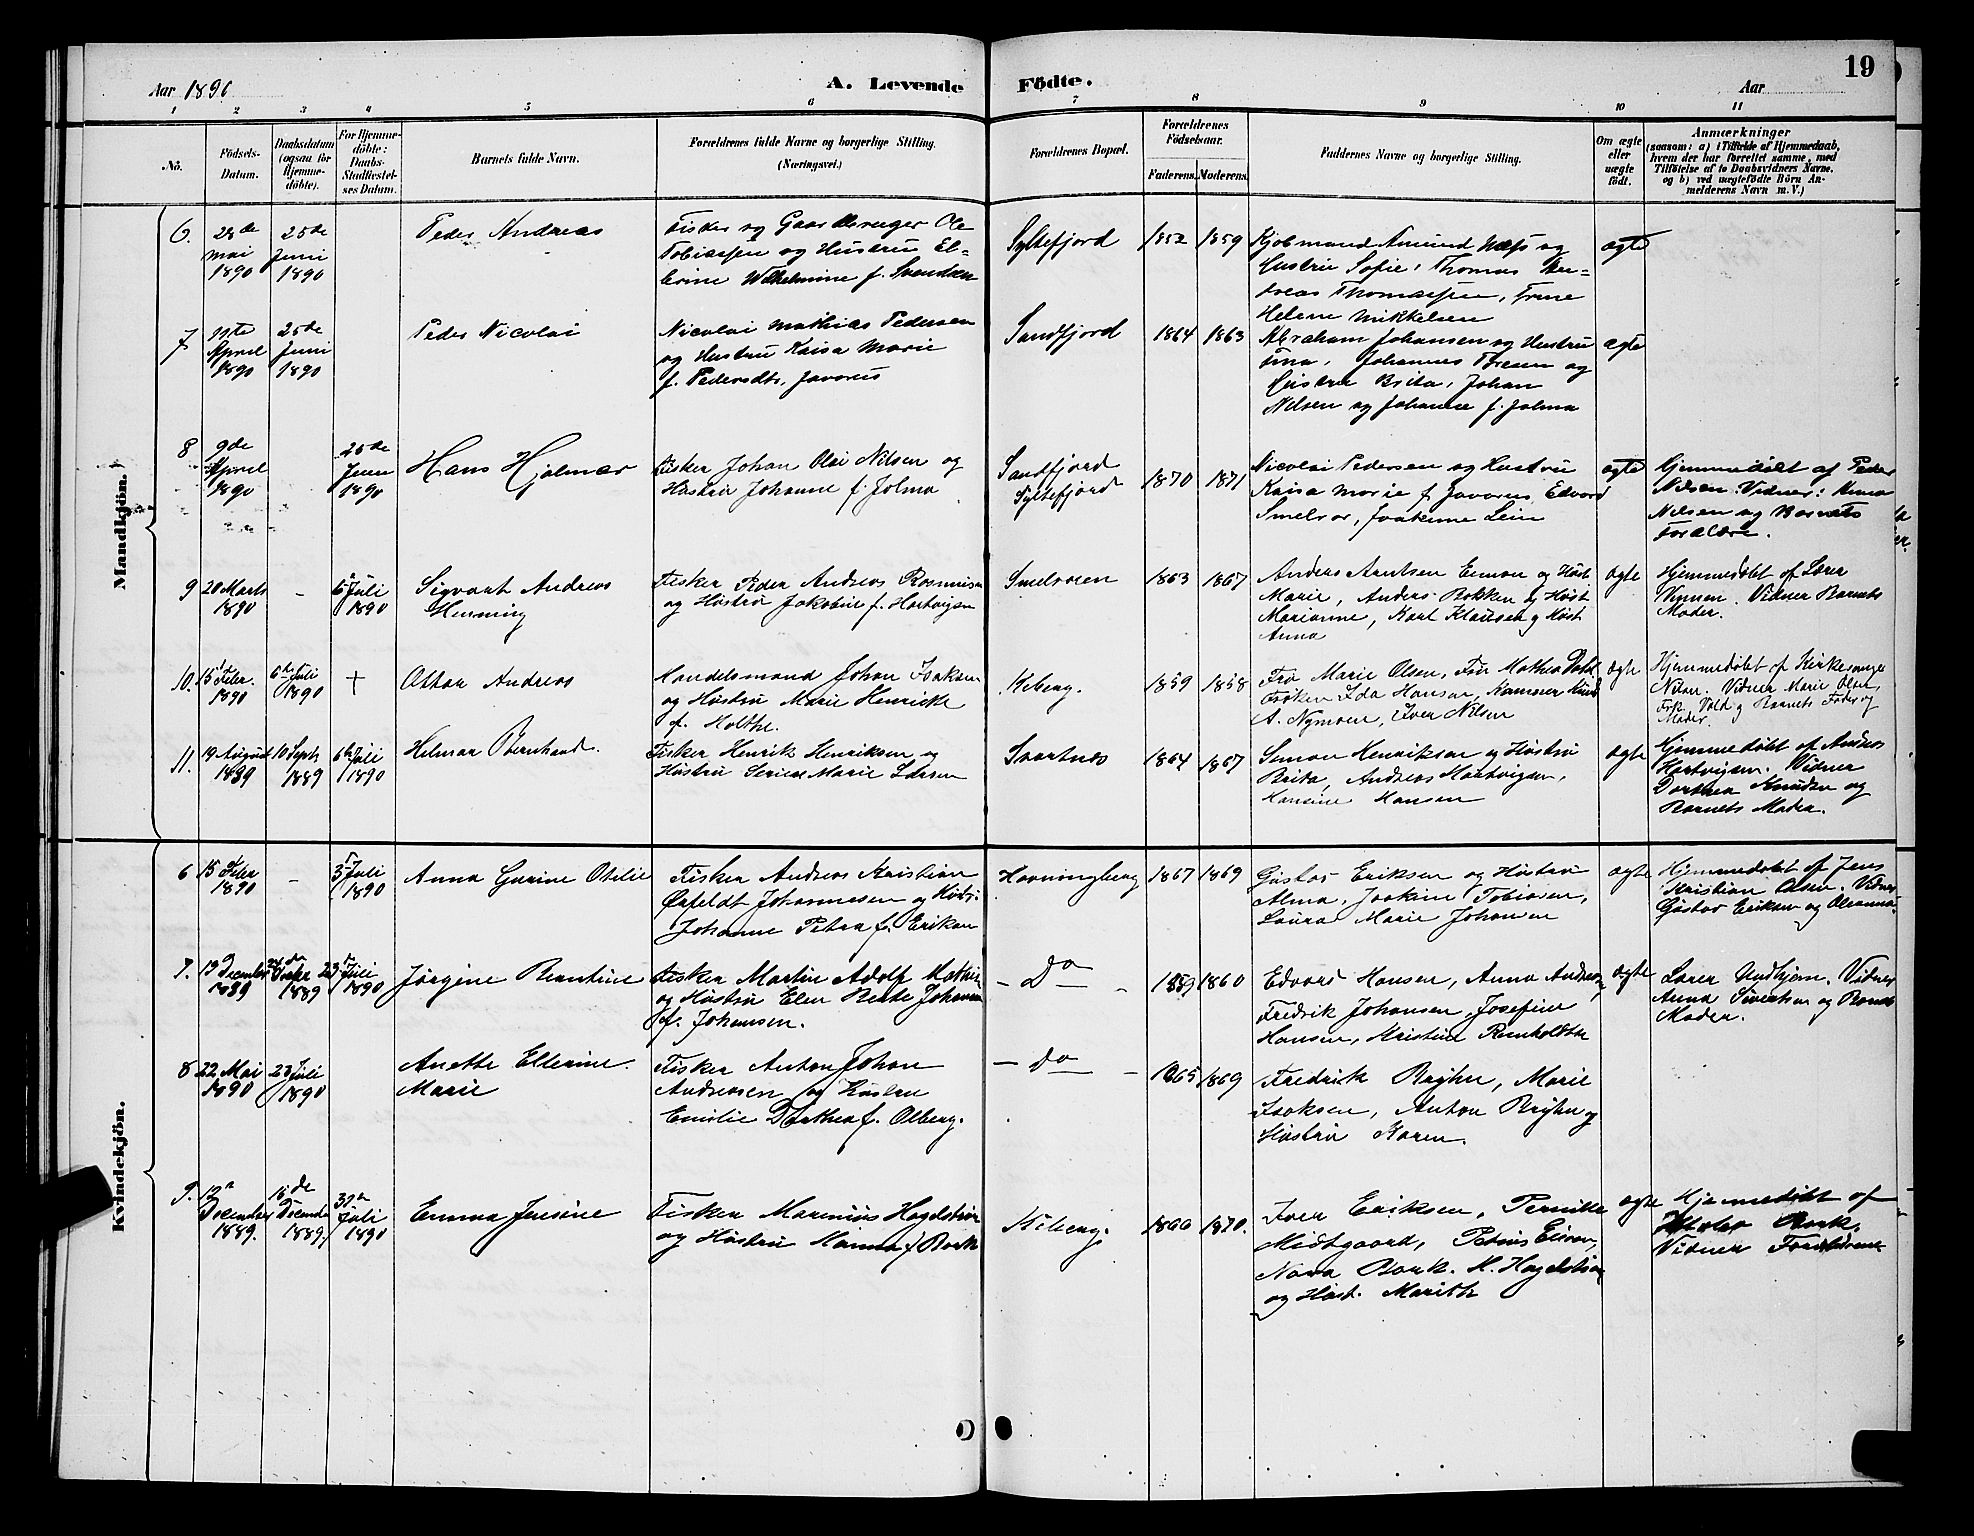 Aar 1890
A. Levende
Födte.
Aar
19
1
2
3
4
5
6
7
8
9
10
11
No.
Födsels-
Datum.
Daabsdatum
(ogsaa for
Hjemme-
döbte).
For Hjemme-
döbte:
Daabs-
Stadfæstel-
ses Datum.
Barnets fulde Navn.
Forældrenes fulde Navne og borgerlige Stilling.
(Næringsvei.)
Forældrenes Bopæl.
Forældrenes
Födselsaar.
Faderens.
Moderens.
Faddernes Navne og borgerlige Stilling.
Om ægte
eller
uægte
födt.
Anmærkninger
(saasom: a) i Tilfælde af Hjemmedaab,
hvem der har forrettet samme, med
Tilföielse af to Daabsvidners Navne,
og b) ved uægtefödte Börn An-
melderens Navn m. V.)
Mandkjön.
6.
mai
1890
25de
Juni
1890
Peder Andreas
Fisker og Gaardbruger Ole
Tobiassen og Hustru El-
Wilhelmine f. Svendsen
Syltefjord
1852
1859
Kjøbmand Amund Næss og
Hustru Sofie, Thomas An-
dreas Thomassen, Trine
Helene Mikkelsen
ægte
7
April
1890
25de
Juni
1890
Peder Nicolai
Nicolai Mathias Pedersen
og Hustru Kaisa Marie
f. Pedersdtr. Javorus
Sandfjord
1864
1863
Abraham Johansen og Hustru
Johannes og
Hustru Brita, Johan
Nilsen og Johanne f. Jolma
ægte
8
9de
April
1890
25de
Juni
1890
Hans Hjalmar
Fisker Johan Olai Nilsen og
Hustru Johanne f. Jolma
Sandfjord
Syltefjord
1870
1871
Nicolai Pedersen og Hustru
Kaisa Marie f. Javorus Edvard
Smelror,
ægte
Hjemmedøbt af Peder
Nilsen. Vidner: Anna
Nilsen og Barnets
Forældre.
9
20 Marts
1890
-
6 Juli
1890
Sigvart Andreas
Henning
Fisker Peder Andreas Rasmusen
og Hustru Jakobine f. Hartvigsen
Smelroren
1863
1867
Anders Arntsen og Hust
Marie, Anders Bakken og Hust
Marianne, Karl Klausen og Hust
Anna
ægte
Hjemmedøbt af Lærer
Vidner Barnets
Moder.
10.
15 Febr.
1890
6te Juli
1890
+
Ottar Andreas
Handelsmand Johan Isaksen
og Hustru Marie Henrikke
f. Holthe.
Kiberg.
1859
1858
Fru Marie Olsen, Fru Mathea Dahl
Frøken Ida Hansen,
A. Nymoen, Iver Nilsen
ægte
Hjemmedøbt af Kirkesanger
Nilsen. Vidner Marie Olsen,
Frk. Vold og Barnets Fader og
Moder.
11.
19 August
1889
10 Septr
1889
6te Juli
1890
Helmar Bernhard.
Fisker Henrik Henriksen og
Hustru Serine Marie Larsen
Svartnæs
1864
1867
Simon Henriksen og Hustru
Brita, Andreas Hartvigsen,
Hansine Hansen
ægte
Hjemmedøbt af Andreas
Hartvigsen. Vidner
Dorthea Knudsen og
Barnets Moder.
Kvindekjön.
6
15 Febr
1890
-
3 Juli
1890
Anna Gurine Otelie
Fisker Andreas Kristian
Ørfeldt Johannesen og Hust.
Johanne Petra f. Eriksen
Havningberg
1867
1869
Gustav Eriksen og Hustru
Alma, Joakim Tobiasen,
Laura Marie Johansen
ægte
Hjemmedøbt af Jens
Kristian Olsen. Vidner
Gustav Eriksen og Oleanna.
7.
19 December
1889
1889
23 Juli
1890
Jørgine Berntine
Fisker Martin Adolf
og Hustru Elen Johanna
f. Johansen.
- Do -
1859
1860
Edvard Hansen, Anna Andresen,
Fredrik Johansen, Josefine
Hansen, Kristine Reinholdtsen
ægte
Lærer Undhjem. Vidner
Anna Sivertsen og Barnets
Moder.
8
22 Mai
1890
23 Juli
1890
Anette Ellerine
Marie
Fisker Anton Johan
Andreassen og Hustru
Emilie Dorthea f. Olberg.
- Do -
1865
1869
Fredrik Bryhn, Marie
Isaksen, Anton Bryhn og
Hustru Karen.
9.
12
December
1889.
15de
December
1889
Juli
1890
Emma Jensine
Fisker Marenius Hagelstrøm
og Hustru Hanna f. Bark
Kiberg.
1866
1870.
Iver Eriksen, Pernille
Midtgaard,
Nora Bark. H. Hagelstrøm
og Hust. Marith
ægte
Hjemmedøbt af
Bark.
Vidner Forældrene